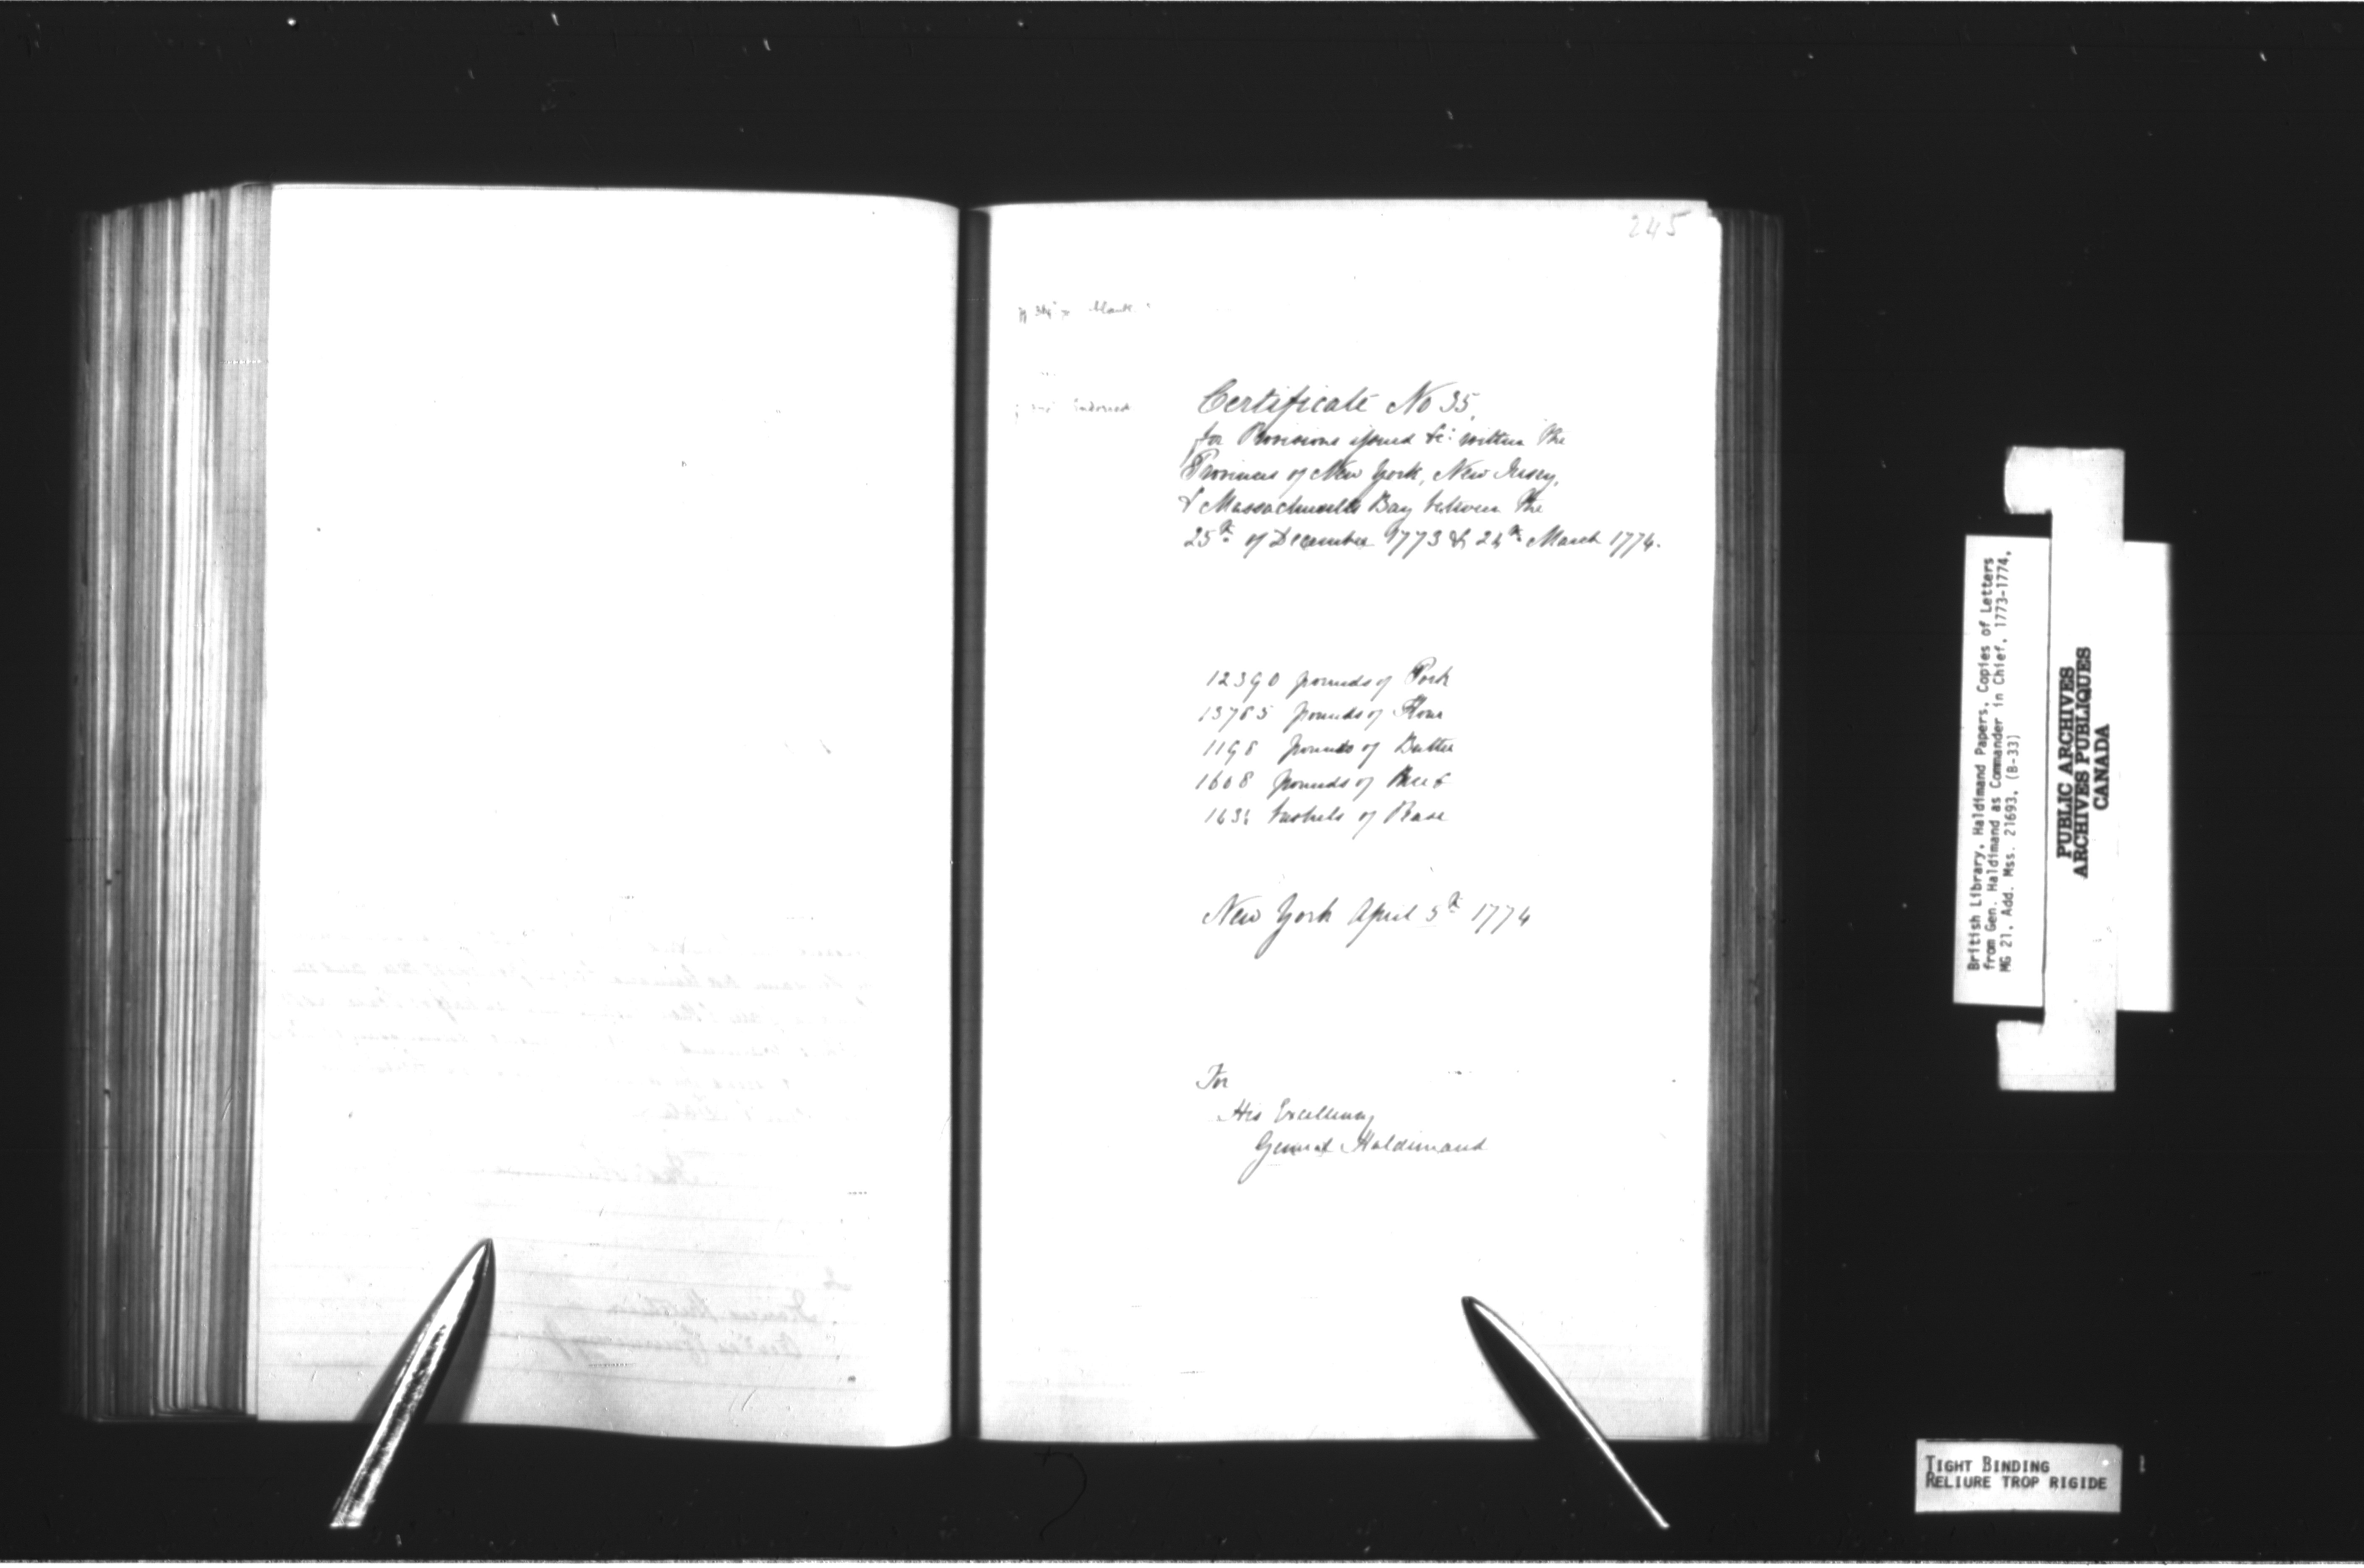 245
Certificate No 35,
for Provisions issued &c: within the
Provinces of New York, New Jersey,
& Massachusetts Bay between the
25th of December 1773 & 24th March 1774.
12390 pounds of Pork
13765 pounds of Flour
1198 pounds of Butter
1608 pounds of
bushels of Pease
New York April 5th 1774
For
His Excellency
General Haldimand
British Library, Haldimand Papers, Copies of Letters
from Gen. Haldimand as Commander in Chief, 1773-1774,
MG 21, Add. Mss. 21693, (B-33)
PUBLIC ARCHIVES
ARCHIVES PUBLIQUES
CANADA
TIGHT BINDING
RELIURE TROP RIGIDE